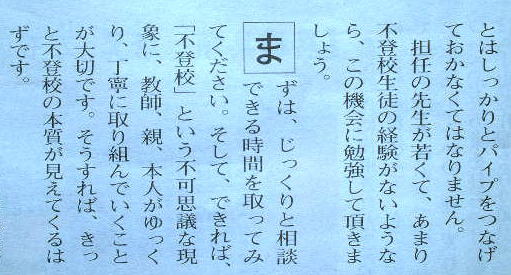 とはしっかりとパイプをつなげ
ておかなくてはなりません。
担任の先生が若くて、あまり
不登校生徒の経験がないような
ら、この機会に勉強して頂きま
しょう。
まずは、じっくりと相談
できる時間を取ってみ
てください。そして、できれば、
「不登校」という不可思議な現
象に、教師、親、本人がゆっく
り、丁寧に取り組んでいくこと
が大切です。そうすれば、きっ
と不登校の本質が見えてくるは
ずです。